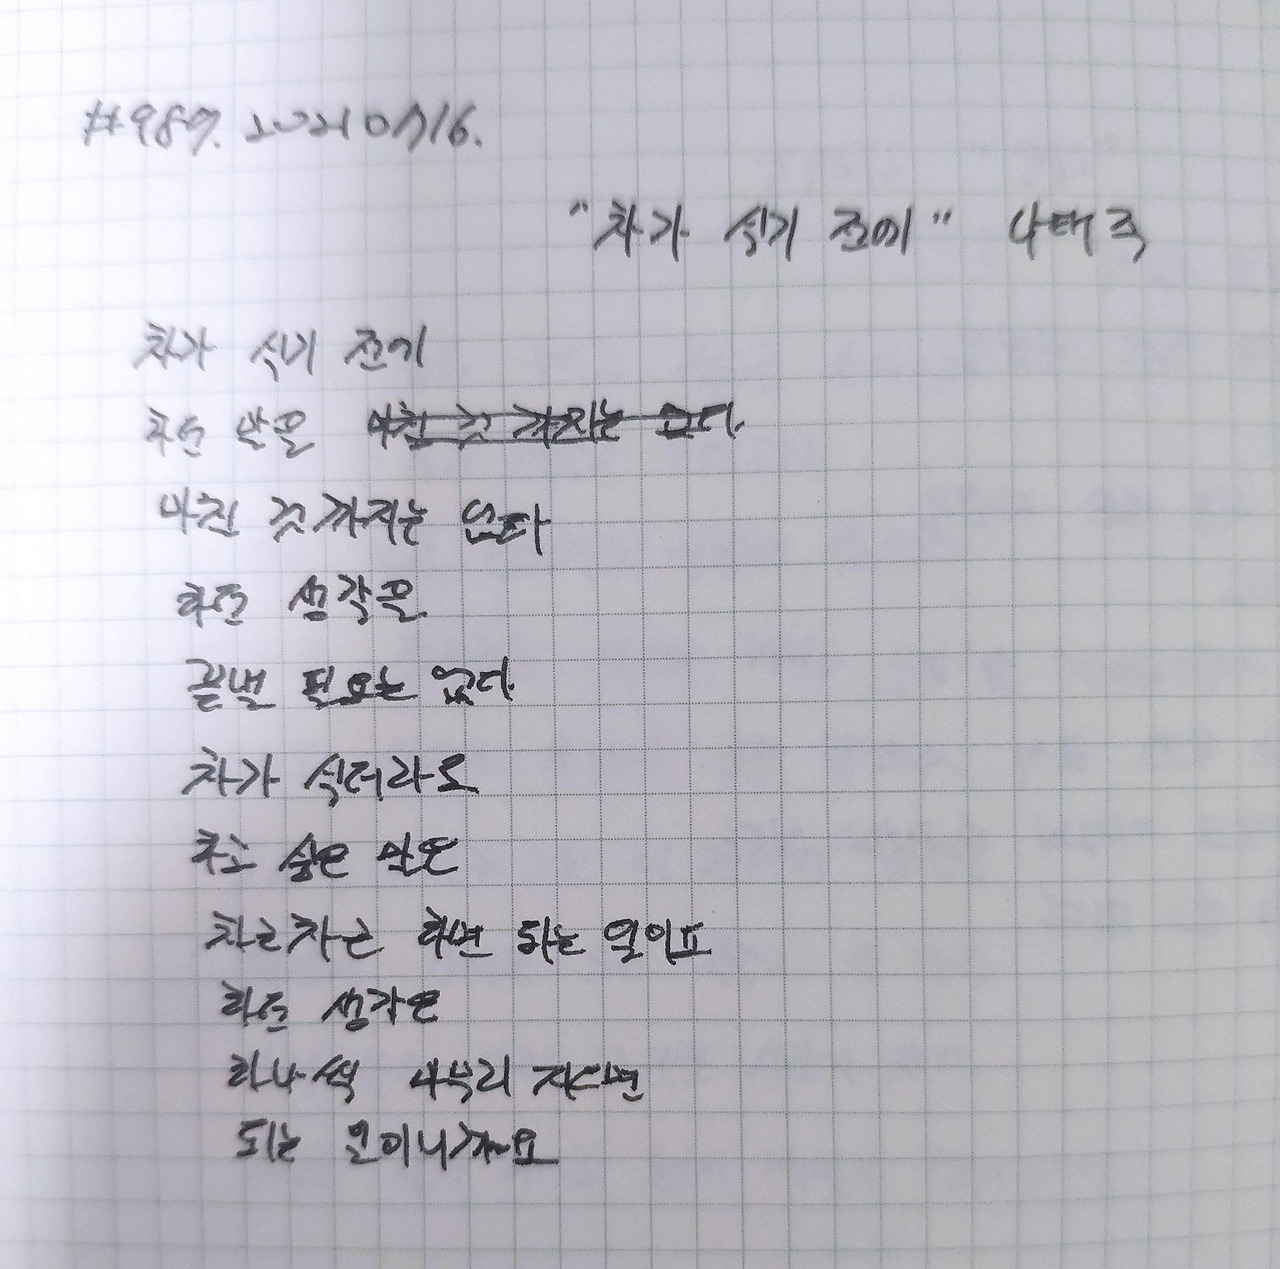 #987. 20210716.
"차가 식기 전에" 나태주
차가 식기 전에
하던 말을 마칠 것 까지는 없다
마칠 것까지는 없다
하던 생각을
끝낼 필요는 없다
차가 식더라도
하고 싶은 말은
차근차근 하면 되는 일이고
하던 생각은
하나씩 마무리 지으면
되는 일이니까요